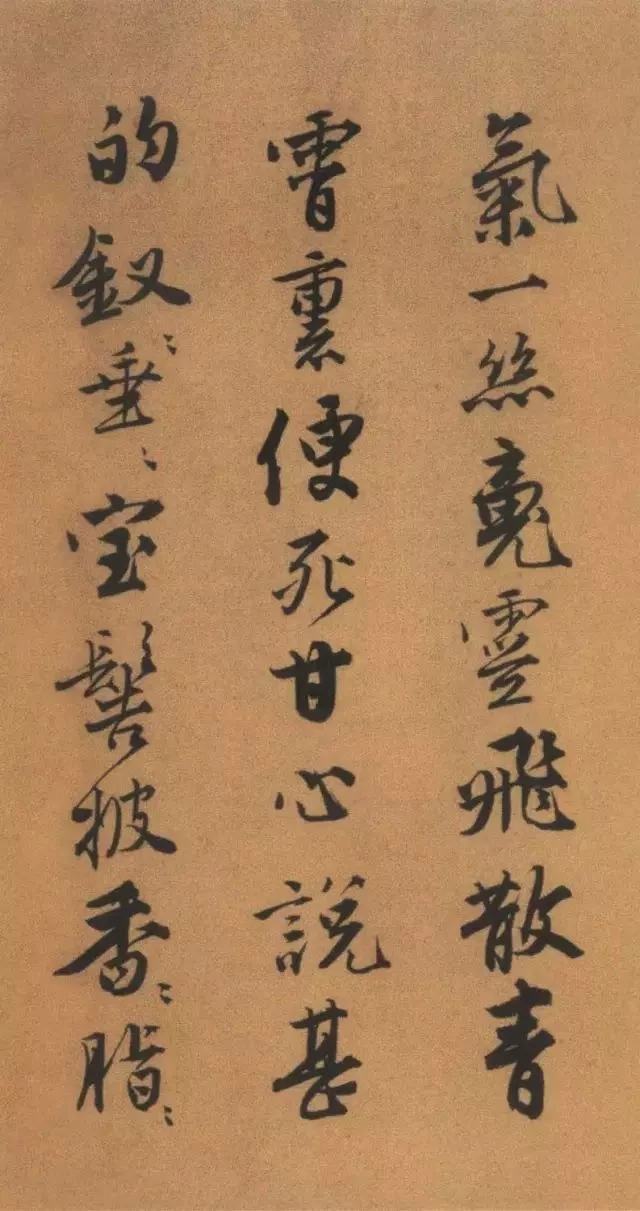 氣一絲魂靈飛散青
霄裏便死甘心說甚
的釵〻垂〻宝髻披香〻脂〻